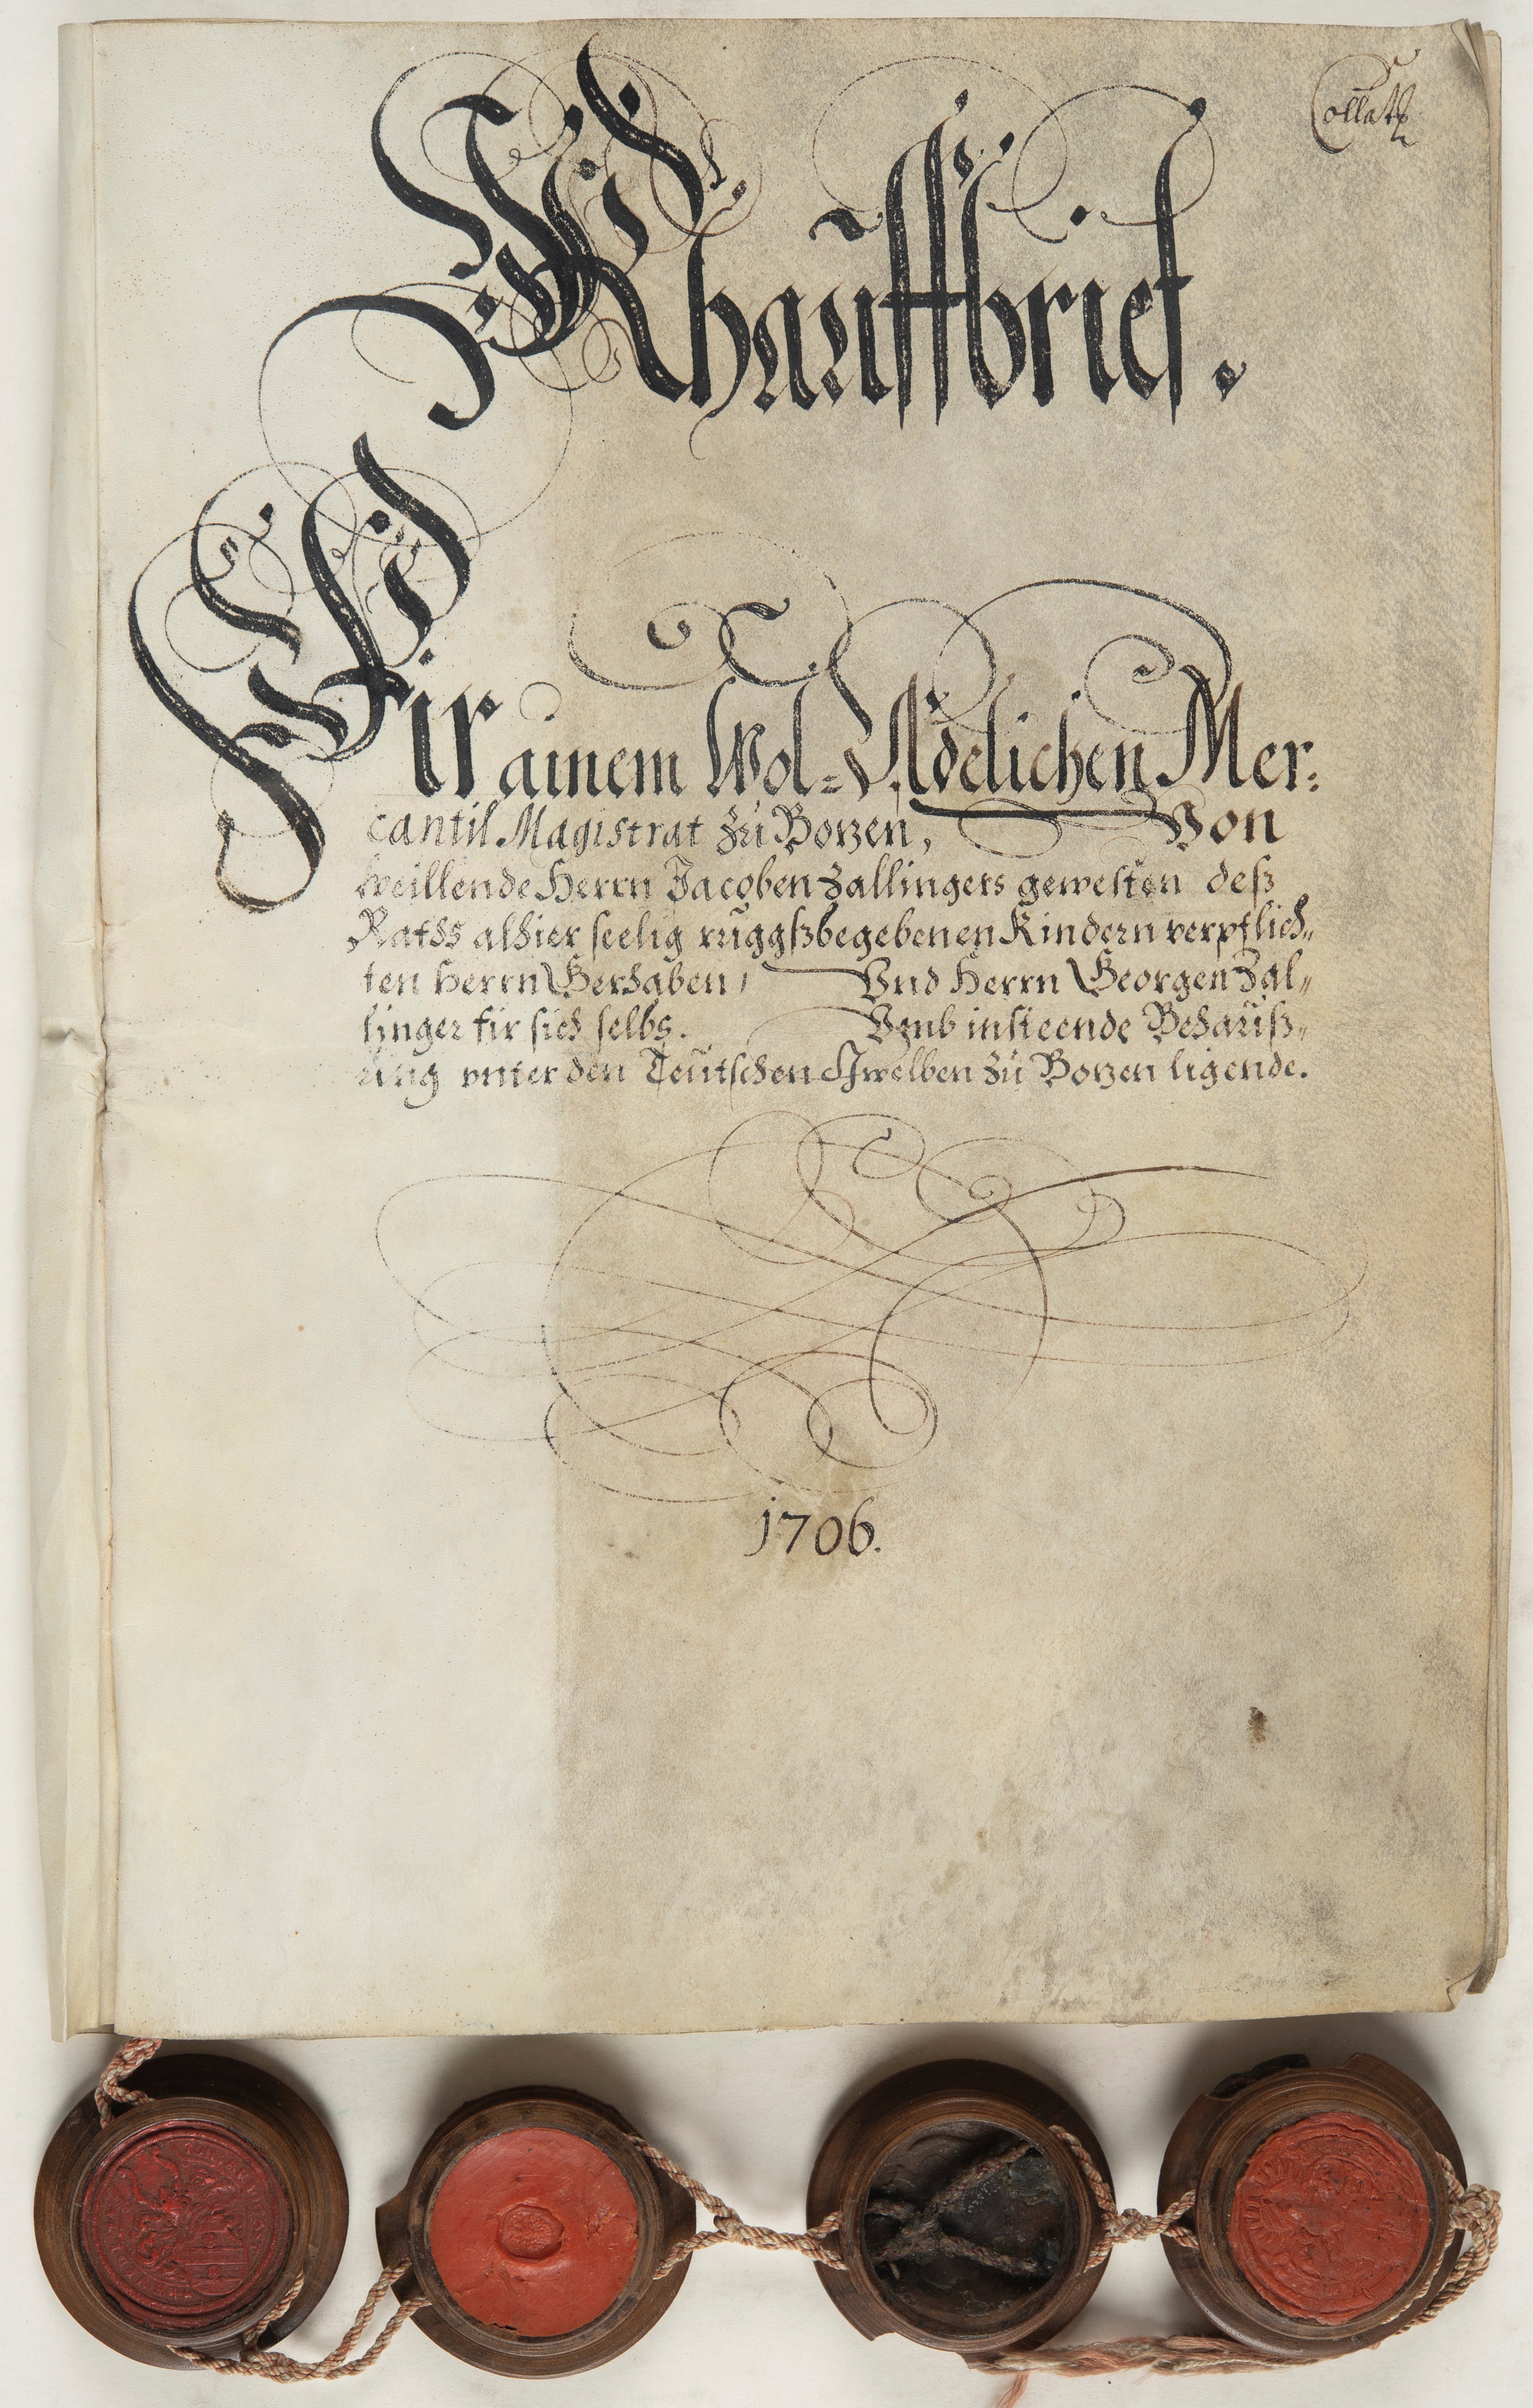 Khauffbrief.
Fir ainem Wol-Adelichen Mer:
cantil Magistrat zu Bozen, Von
weillende Herrn Jacoben Zallingers gewesten deß
Raths alhier seelig ruggßbegebenen Kindern verpflich„
ten Herrn Gerhaben, Vnd Herrn Georgen Zal„
linger fir sich selbs. Vmb insteende Behauß„
ung vnter den Teutschen Gwelben zu Bozen ligende.
1706.